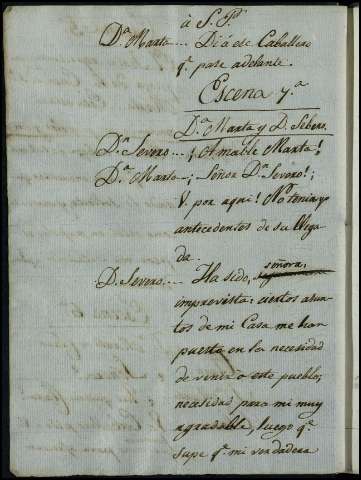 à S. Pd
Dª Marta.... Di á ese Caballero
qe pase adelante.
Escena 7ª
Dª Marta y D. Sebero.
Dn Severo.... ¡Amable Marta!
Dª Marta—¡Señor Dn Severo!¡
V. por aqui! No tenia yo
antecedentes de su llega
da.
D. Severo.... Ha sido, señora,
imprevista: ciertos asun
tos de mi Casa me han
puesto en la necesidad
de venir a este pueblo,
necesidad para mi muy
agradable, luego qe
supe qe mi verdadera